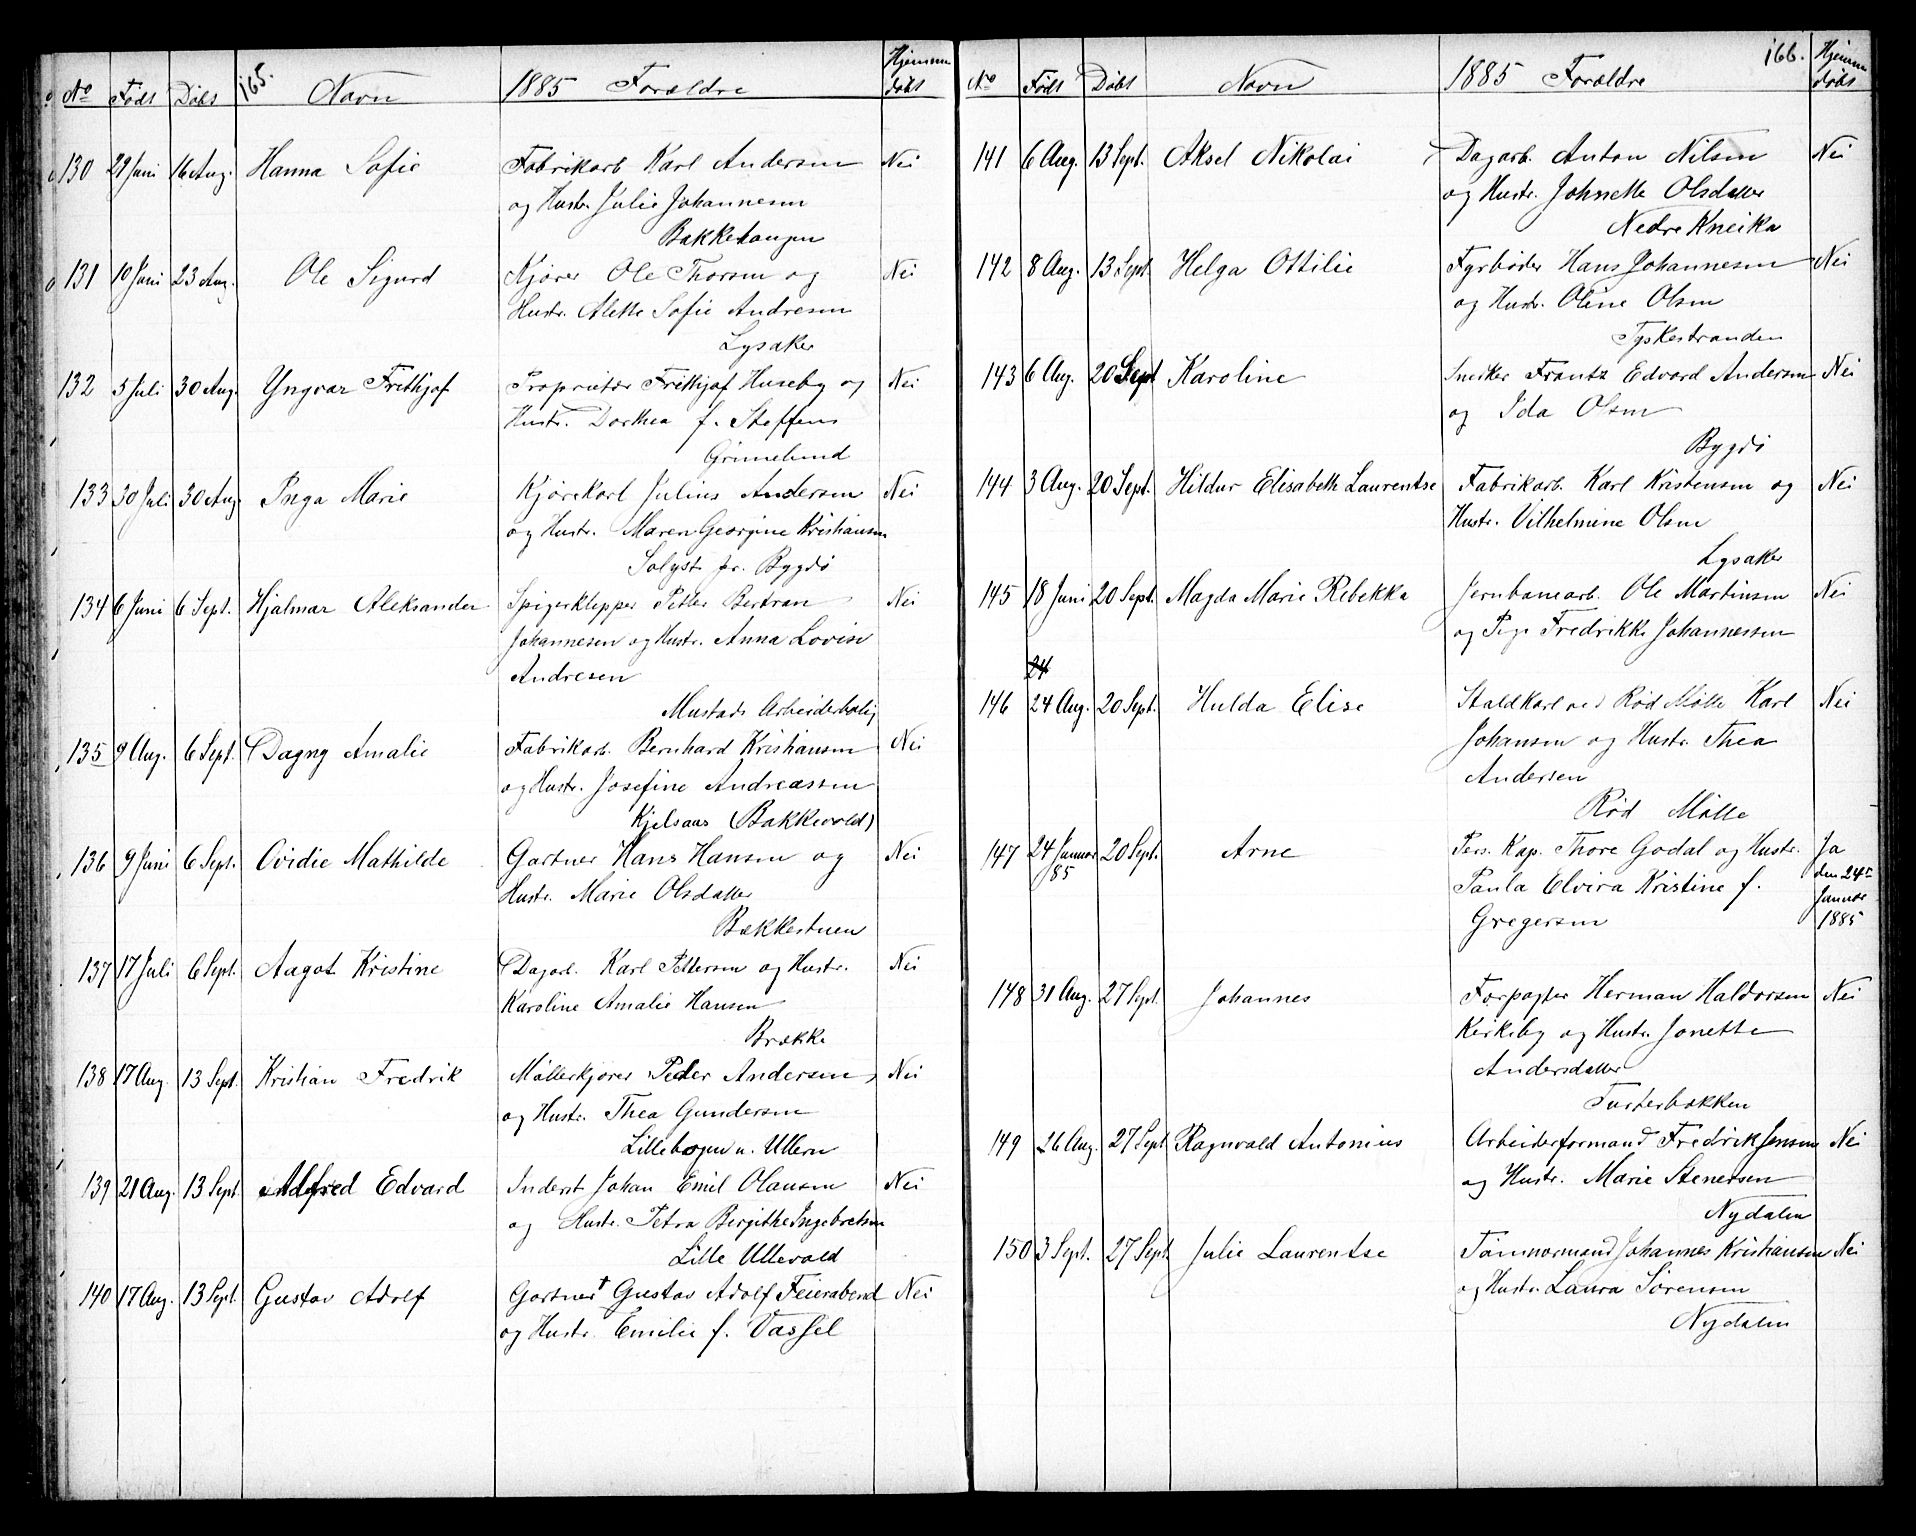 165.
No Født Døbt Navn 1885 Forældre Hjemme døbt
130 29 Juni 16 Aug. Hanna Sofie Fabrikarb. Karl Andersen Nei
og Hustr. Julie Johannesen
Bakkehaugen
131 10 Juni 23 Aug. Ole Sigurd Kjører Ole Thorsen og Nei
Hustr. Alette Sofie Andresen
Lysaker
132 5 Juli 30 Aug. Yngvar Frithjof Proprietær Frithjof Huseby og Nei
Hustr. Dorthea f. Steffens
Grimelund
133 30 Juli 30 Aug Inga Marie Kjørekarl Julius Andersen Nei
og Hustr. Maren Georgine Kristiansen
Solyst pr. Bygdø
134 6 Juni 6 Sept. Hjalmar Aleksander Spigerklepper Petter Bertran Nei
Johannesen og Hustr. Anna Lovise
Andresen
Mustads Arbeiderbolig
135 9 Aug. 6 Sept. Dagny Amalie Fabrikarb. Bernhard Kristiansen Nei
og Hustr. Josefine Andreassen
Kjelsaas (Bakkevold)
136 9 Juni 6 Sept. Ovidie Mathilde Gartner Hans Hansen og Nei
Hustr. Marie Olsdatter
Bækkestuen
137 17 Juli 6 Sept. Aagot Kristine Dagarb. Karl Pettersen og Hustr. Nei
Karoline Amalie Hansen
Brække
138 17 Aug. 13 Sept. Kristian Fredrik Møllerkjører Peder Andersen Nei
og Hustr. Thea Gundersen
Lillehagen u. Ullern
139 21 Aug. 13 Sept. Alfred Edvard Inderst Johan Emil Olausen Nei
og Hustr. Petra Birgithe Ingebretsen
Lille Ullevold
140 17 Aug. 13 Sept. Gustav Adolf Gartner † Gustav Adolf Feierabend Nei
og Hustr. Emilie f. Vassel
166.
No Født Døbt Navn 1885 Forældre Hjemme døbt
141 6 Aug. 13 Sept. Aksel Nikolai Dagarb. Anton Nilsen Nei
og Hustr. Johnette Olsdatter
Nedre Kneika
142 8 Aug. 13 Sept. Helga Ottilie Fyrbøder Hans Johannesen Nei
og Hustr. Oline Olsen
Tyskestranden
143 6 Aug. 20 Sept Karoline Sneiker Frantz Edvard Andersen Nei
og Ida Olsen
Bygdø
144 3 Aug. 20 Sept. Hildur Elisabeth Laurentse Fabrikarb. Karl Kristensen og Nei
Hustr. Vilhelmine Olsen
Lysaker
145 18 Juni 20 Sept. Magda Marie Rebekka Jernbanearb. Ole Martinsen Nei
og Pige Fredrikke Johannessen
24
146 24 Aug. 20 Sept. Hulda Elise Staldkarl ved Rød Mølle Karl Nei
Johansen og Hustr. Thea
Andersen
Rød Mølle
147 24 Januar 85 20 Sept. Arne Pers. Kap. Thore Godal og Hustr. Ja
Paula Elvira Kristine f. den 24de
Gregersen Januar
1885
148 31 Aug. 27 Sept. Johannes Forpagter Herman Haldorsen Nei
Kirkeby og Hustr. Jonette
Andersdatter
Tusterbakken
149 26 Aug. 27 Sept Ragnvald Antonius Arbeiderformand Fredrik Jensen Nei
og Hustr. Marie Stenersen
Nydalen
150 3 Sept. 27 Sept. Julie Laurentse Tømmermand Johannes Kristiansen Nei
og Hustr. Laura Sørensen
Nydalen